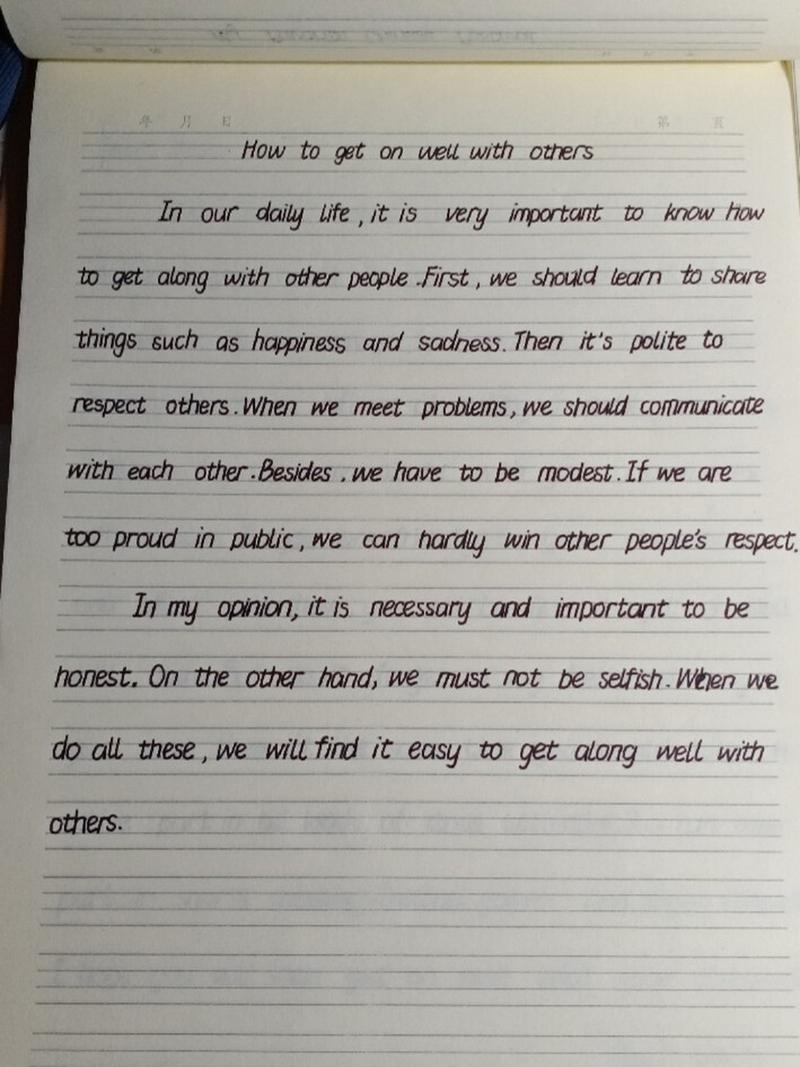 年 月 日 第 页
How to get on well with others
In our daily life, it is very important to know how
to get along with other people. First, we should learn to share
things such as happiness and sadness. Then it's polite to
respect others. When we meet problems, we should communicate
with each other. Besides, we have to be modest. If we are
too proud in public, we can hardly win other people's respect.
In my opinion, it is necessary and important to be
honest. On the other hand, we must not be selfish. When we
do all these, we will find it easy to get along well with
others.